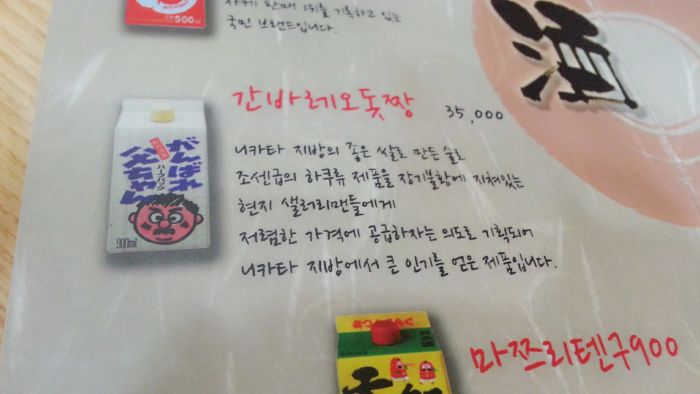 500ml
사케 판매 1위를 기록하고 있는
국민 브랜드입니다.
酒
간바레오또짱 35,000
がんばれ
父ちゃん
900ml
니카타 지방의 좋은 쌀로 만든 술로
조센급의 하쿠류 제품을 장기불황에 지쳐있는
현지 샐러리맨들에게
저렴한 가격에 공급하자는 의도로 기획되어
니카타 지방에서 큰 인기를 얻은 제품입니다.
마쯔리텐구900